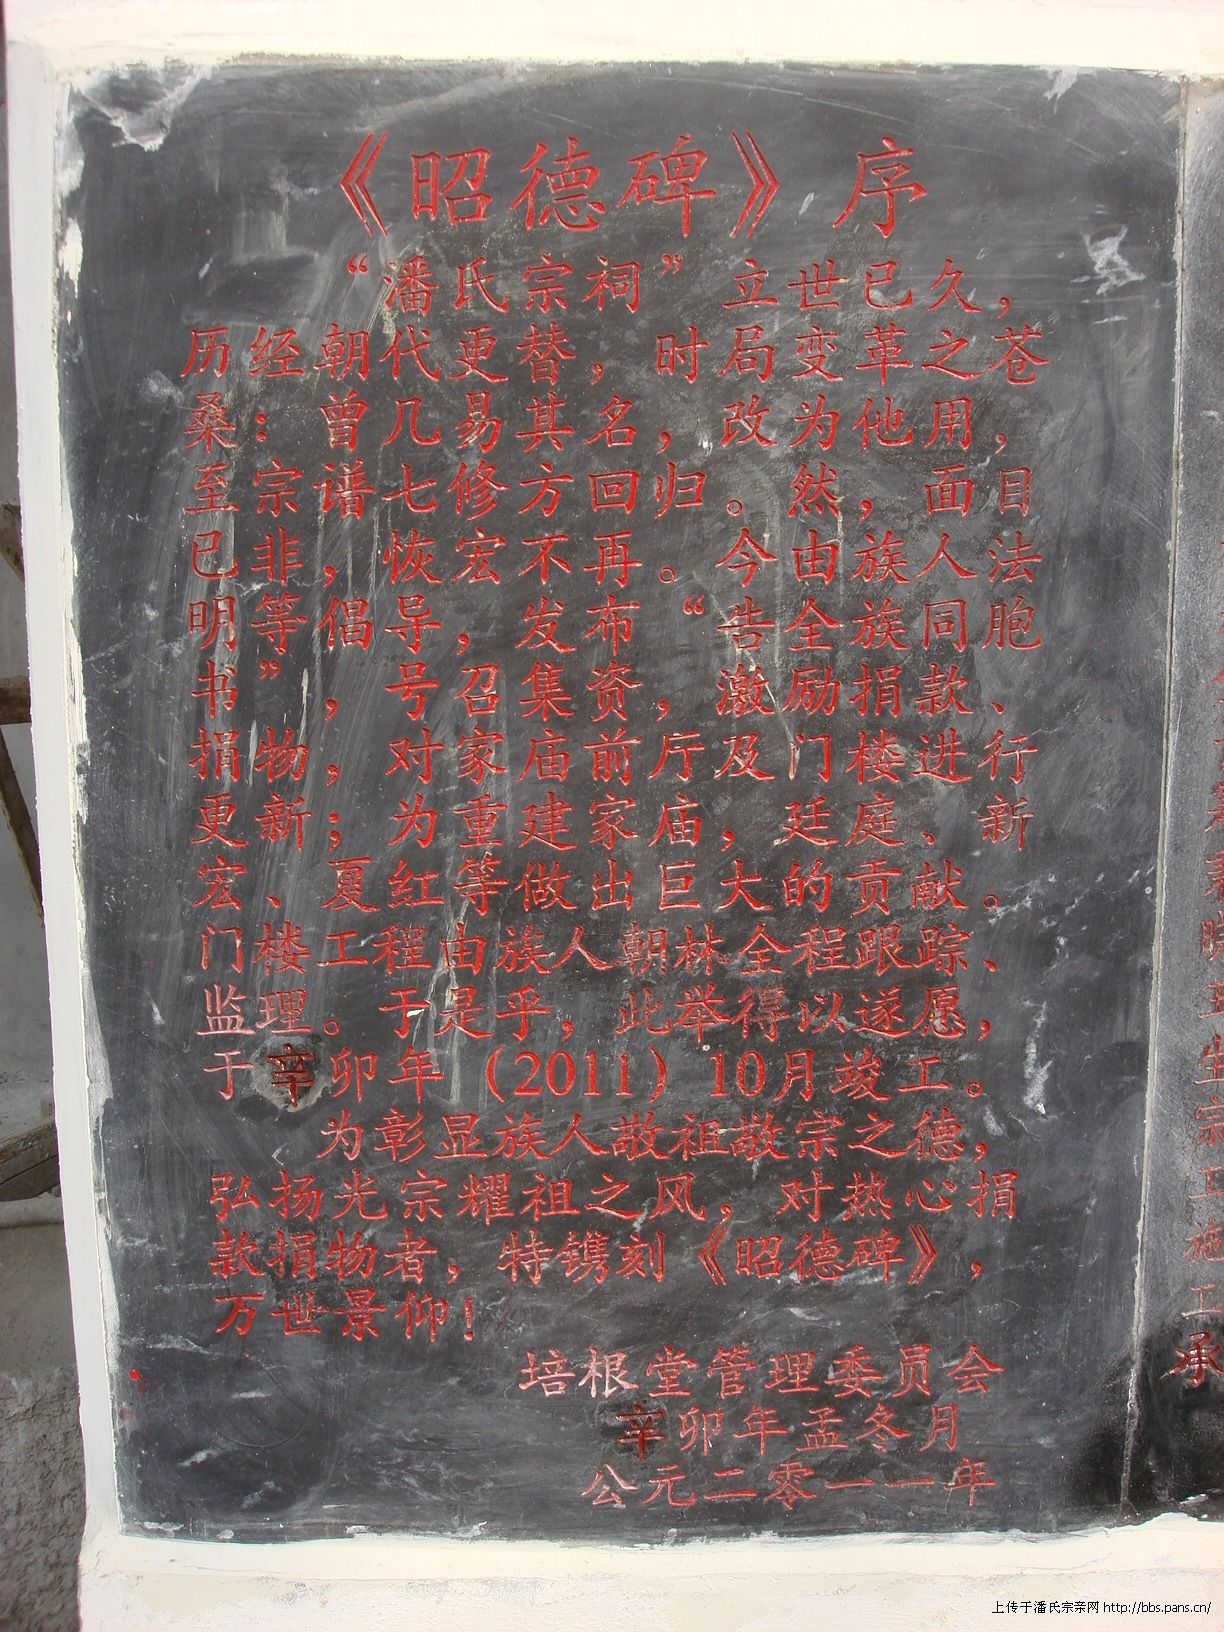 《昭德碑》序
“潘氏宗祠”立世已久，
历经朝代更替，时局变革之苍
桑：曾几易其名，改为他用，
至宗谱七修方回归。然，面目
已非，恢宏不再。今由族人法
明等倡导，发布“告全族同胞
书”，号召集资，激励捐款、
捐物，对家庙前厅及门楼进行
更新；为重建家庙，廷庭、新
宏、夏红等做出巨大的贡献。
门楼工程由族人朝林全程跟踪、
监理。于是乎，此举得以遂愿，
于辛卯年（2011）10月竣工。
为彰显族人敬祖敬宗之德，
弘扬光宗耀祖之风，对热心捐
款捐物者，特镌刻《昭德碑》，
万世景仰！
培根堂管理委员会
辛卯年孟冬月
公元二零一一年
上传于潘氏宗亲网 http://bbs.pans.cn/